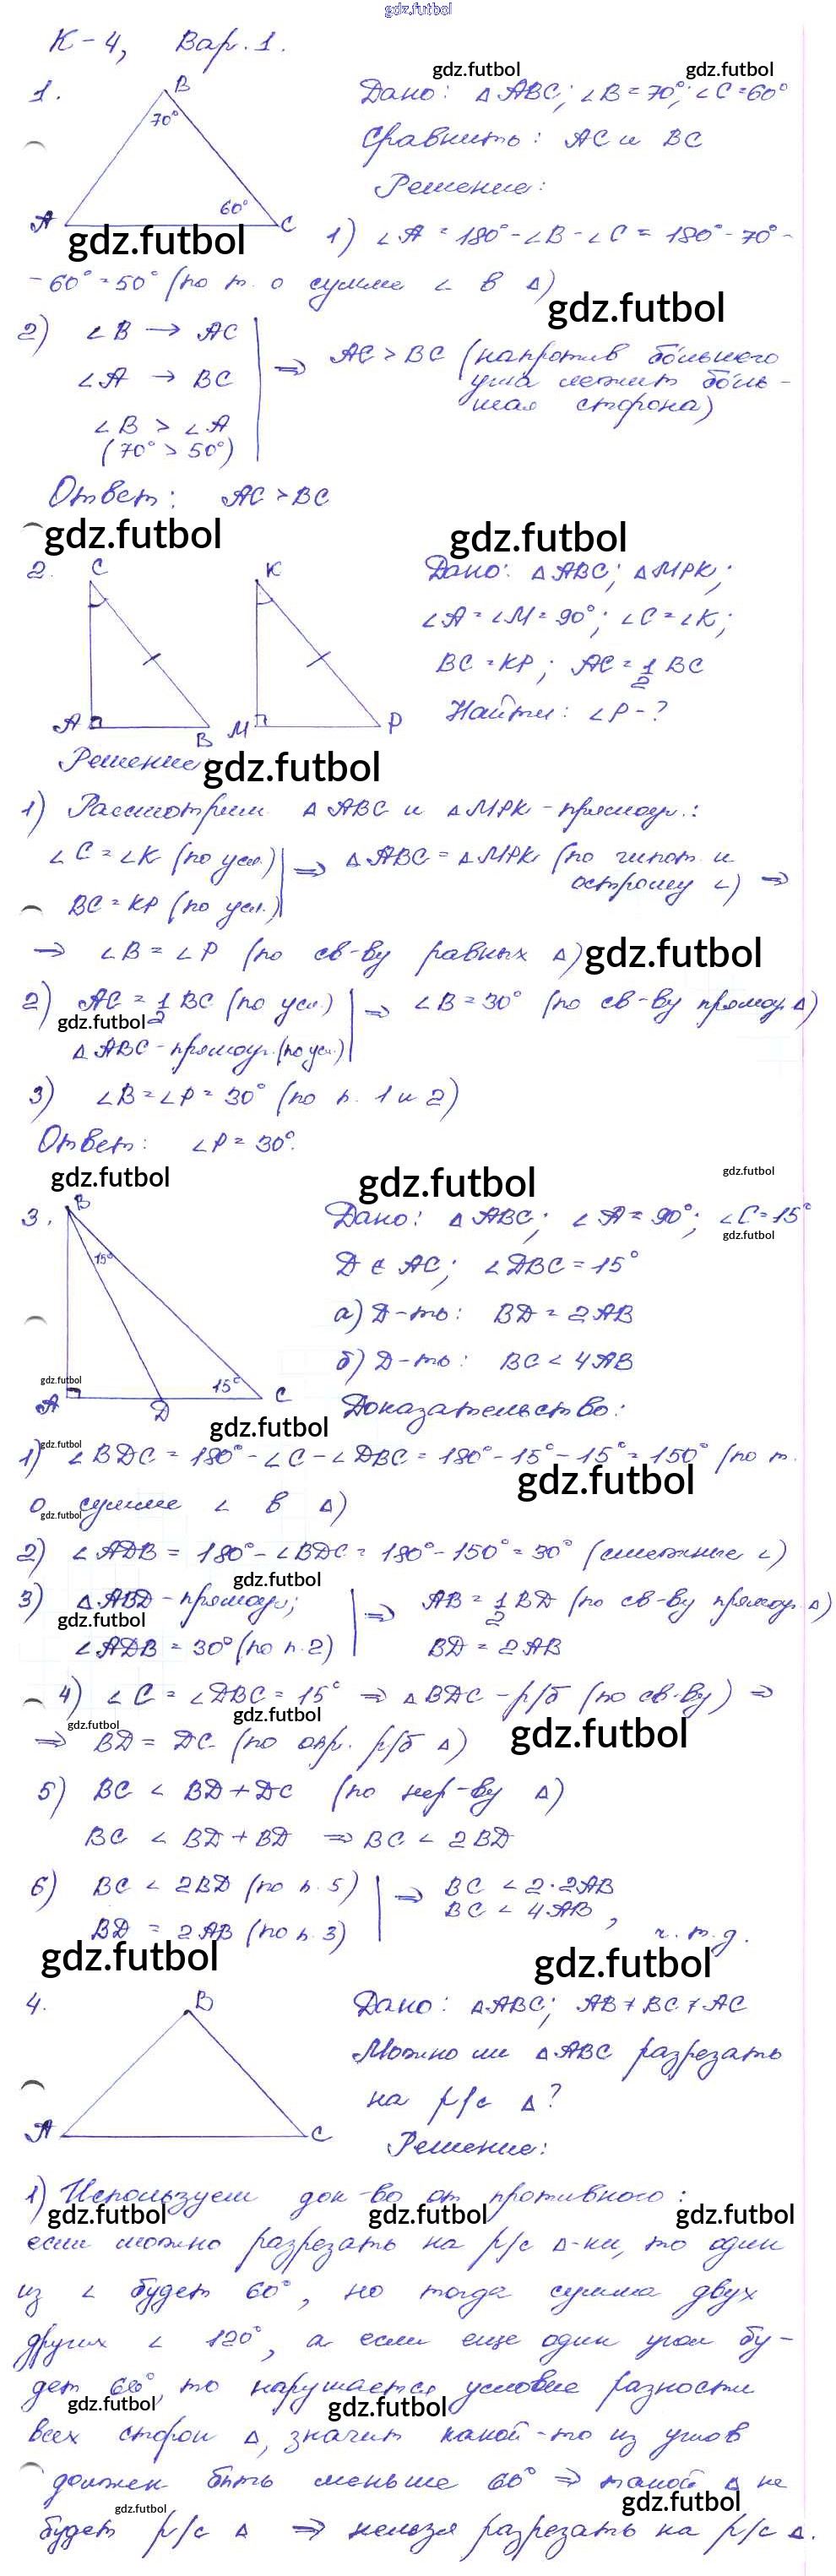 gdz.futbol
К-4, Вар. 1.
gdz.futbol gdz.futbol
1. B Дано: △ABC; ∠B = 70°; ∠C = 60°
70°
Сравнить: AC и BC
Решение:
60°
A C
gdz.futbol
1) ∠A = 180° - ∠B - ∠C = 180° - 70° -
- 60° = 50° (по т. о сумме ∠ в △)
gdz.futbol
2) ∠B → AC
∠A → BC
∠B > ∠A
(70° > 50°)
⇒ AC > BC (напротив бóльшего
угла лежит бóль-
шая сторона)
Ответ: AC > BC
gdz.futbol gdz.futbol
2. C K Дано: △ABC; △MPK;
∠A = ∠M = 90°; ∠C = ∠K;
BC = KP; AC = 1/2 BC
A B M P Найти: ∠P - ?
Решение:
gdz.futbol
1) Рассмотрим △ABC и △MPK - прямоуг.:
∠C = ∠K (по усл.)
BC = KP (по усл.)
⇒ △ABC = △MPK (по гипот. и
острому ∠) ⇒
⇒ ∠B = ∠P (по св-ву равных △)
gdz.futbol
2) AC = 1/2 BC (по усл.) ⇒ ∠B = 30° (по св-ву прямоуг. △)
gdz.futbol
△ABC - прямоуг. (по усл.)
3) ∠B = ∠P = 30° (по п. 1 и 2)
Ответ: ∠P = 30°.
gdz.futbol gdz.futbol gdz.futbol
3. B Дано: △ABC; ∠A = 90°; ∠C = 15°
gdz.futbol
15°
D ∈ AC; ∠DBC = 15°
а) Д-ть: BD = 2AB
б) Д-ть: BC < 4AB
gdz.futbol
15°
A D C
Доказательство:
gdz.futbol
gdz.futbol
1) ∠BDC = 180° - ∠C - ∠DBC = 180° - 15° - 15° = 150° (по т.
gdz.futbol
о сумме ∠ в △)
gdz.futbol
2) ∠ADB = 180° - ∠BDC = 180° - 150° = 30° (смежные ∠)
gdz.futbol
3) △ABD - прямоуг.;
gdz.futbol
∠ADB = 30° (по п. 2)
⇒ AB = 1/2 BD (по св-ву прямоуг. △)
BD = 2AB
4) ∠C = ∠DBC = 15° ⇒ △BDC - р/б (по св-ву) ⇒
gdz.futbol
gdz.futbol gdz.futbol
⇒ BD = DC (по опр. р/б △)
5) BC < BD + DC (по нер-ву △)
BC < BD + BD ⇒ BC < 2BD
6) BC < 2BD (по п. 5)
BD = 2AB (по п. 3)
⇒ BC < 2·2AB
BC < 4AB, ч.т.д.
gdz.futbol gdz.futbol
4. B Дано: △ABC; AB ≠ BC ≠ AC
Можно ли △ABC разрезать
на р/с △?
A C
Решение:
1) Используем док-во от противного:
gdz.futbol gdz.futbol gdz.futbol
если можно разрезать на р/с △-ки, то один
из ∠ будет 60°, но тогда сумма двух
других ∠ 120°, а если еще один угол бу-
дет 60°, то нарушается условие разности
gdz.futbol gdz.futbol
всех сторон △, значит какой-то из углов
должен быть меньше 60° ⇒ такой △ не
gdz.futbol gdz.futbol
будет р/с △ ⇒ нельзя разрезать на р/с △.